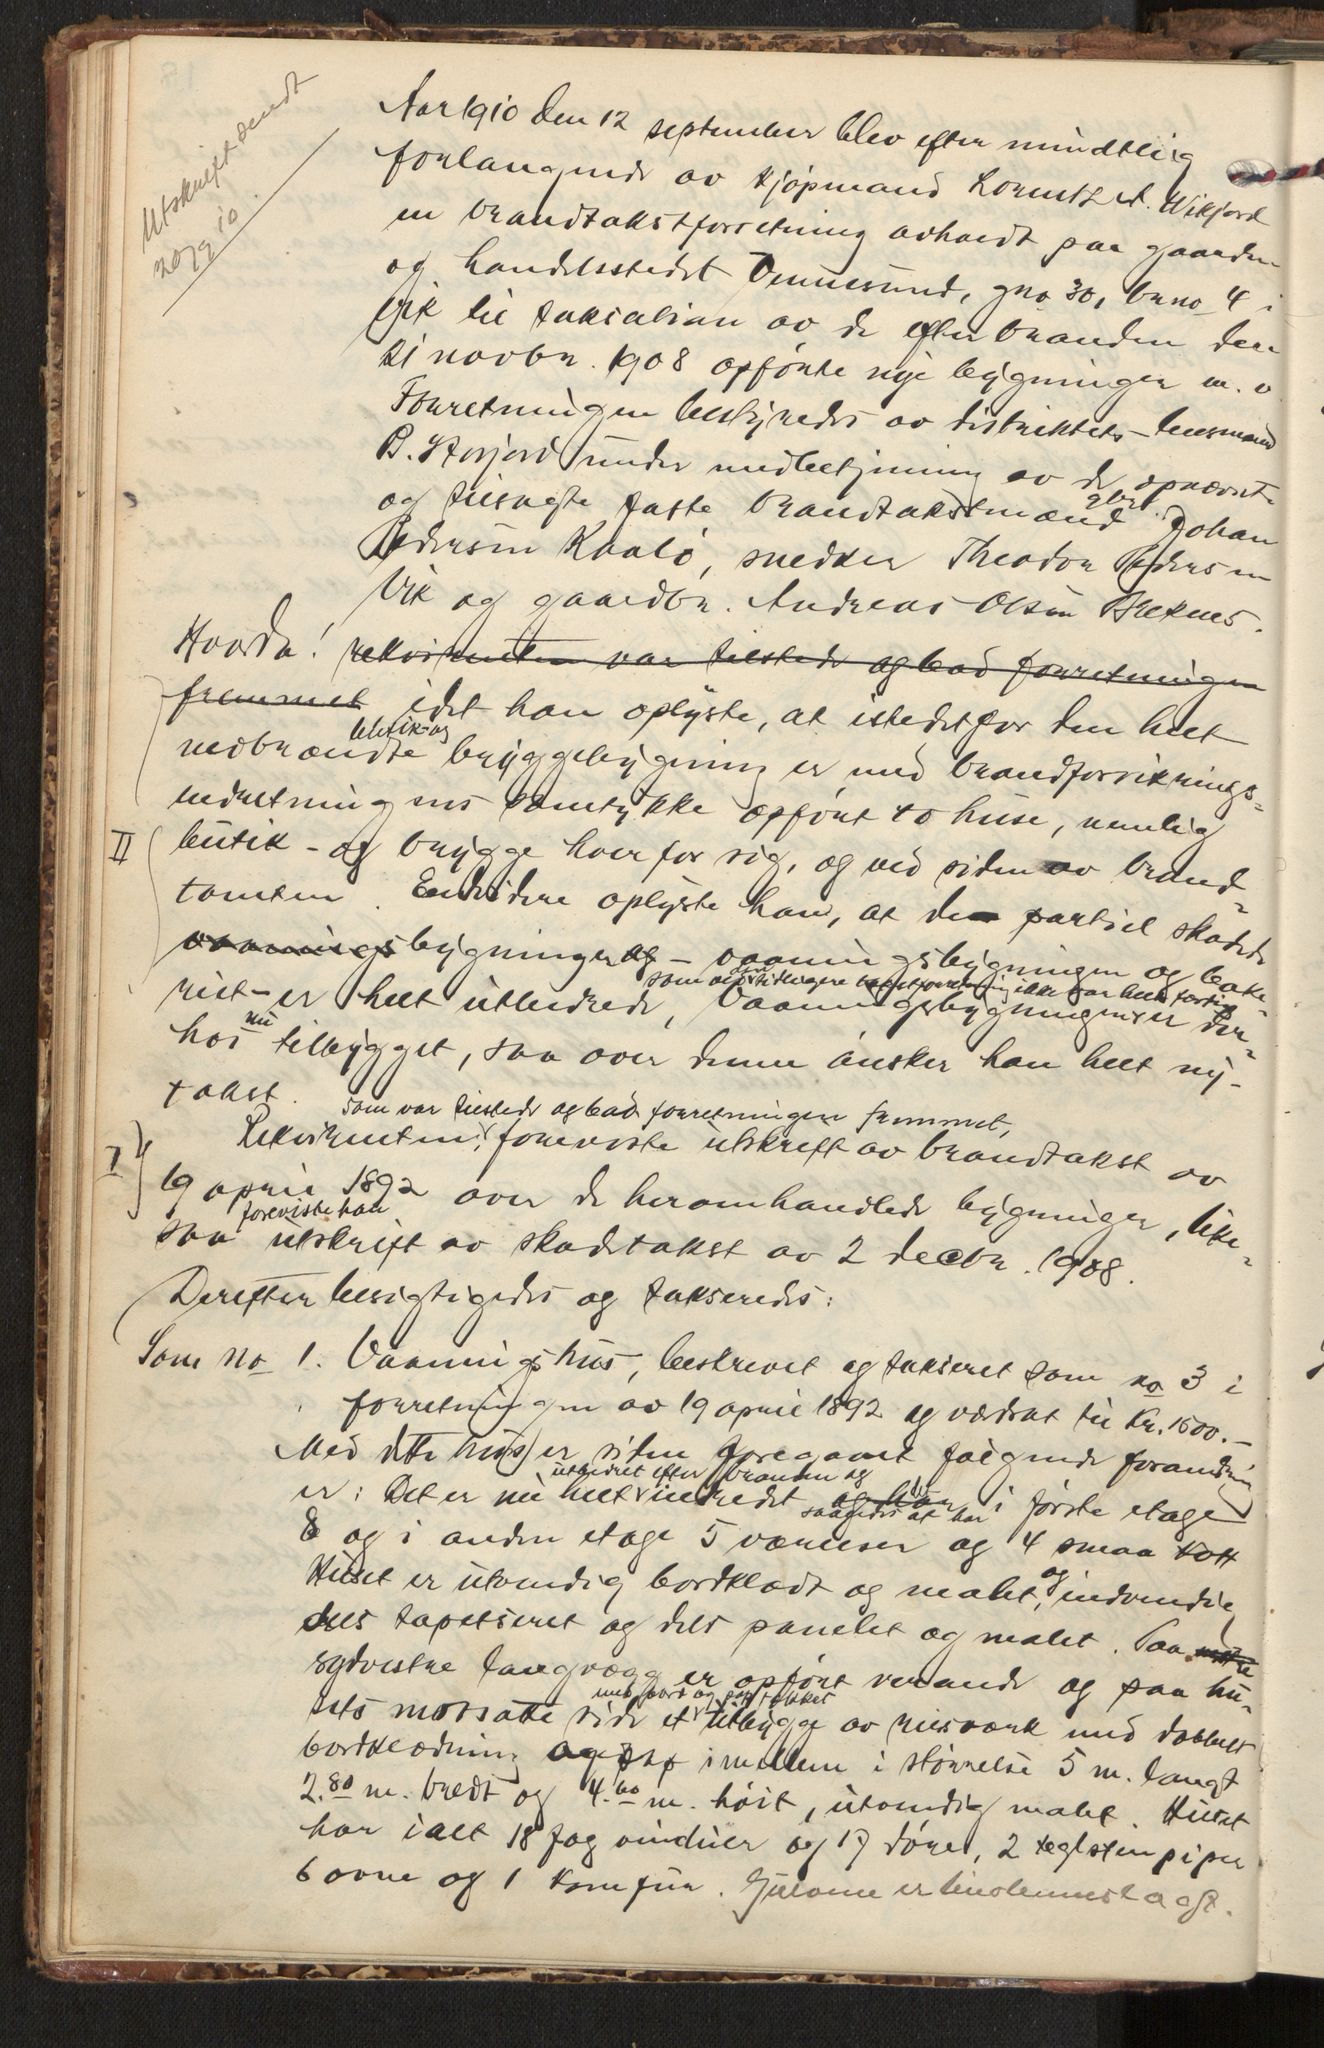 Utskrift sendt
20/9 10.
Aar 1910 den 12 september blev efter mundtlig
forlangende av kjøpmand Lorentz A. Wikjord
en brandtakstforretning avholdt paa gaarden
og handelsstedet Tennesund, gno 30, brno 4 i
Vik til taksation av de efter branden den
21 novbr. 1908 opførte nye bygninger m. v
Forretningen bestyredes av distriktets lensmand
B. Storjord under medbetjening av de opnævnte
og tilsagte faste brandtakstmænd gbr. Johan
Pedersen Kvalø, snedker Theodor Pedersen
Vik og gaardbr. Andreas Olsen Breknes.
Hvorda! rekvirenten var tilstede og bad forretningen
fremmet idet han oplyste, at istedetfor den helt
butik- og
nedbrændte bryggebygning er med brandforsikrings-
indretningens samtykke opført to huse, nemlig
II butik - og brygge hver for sig, og ved siden av brand-
tomten. Endvidere oplyste han, at den partiel skadede
vaanings bygninger og - vaaningsbygningen og
som ved den tidligere ikke var helt færdig
er helt utbedret, Vaaningsbygningen er der-
hos nu tilbygget, saa over denne ønsker han helt ny-
takst.
som var tilstede og bad forretningen fremmet,
I Rekvirenten, foreviste utskrift av brandtakst av
19 april 1892 over de heromhandlede bygninger, like-
foreviste han
saa utskrift av skadetakst av 2 decbr. 1908.
Derefter besigtigedes og takseredes:
Som no 1. Vaaningshus, beskrevet og takseret som no 3 i
forretningen av 19 april 1892 og værdsat til Kr. 1600.-
Med dette hus er siden foregaaet følgende forandring
utbedret efter branden og
er: Det er nu helt indredet og har i første etage
saaledes at har
8 og i anden etage 5 værelser og 4 smaa kott
Huset er utvendig bordklædt og malet, og indvendig
dels tapetseret og dels panelet og malet. Paa
sydvestre langvæg er opført veranda og paa hu-
med bord og pap tækket
sets motsatte side et tilbygg av reisværk med dobbelt
bordklædning og pap imellem i størrelse 5 m. langt
2.80 m. bredt og 4.60 m. høit, utvendig malet. Huset
har ialt 18 fag vinduer og 17 døre, 2 teglstenpiper
6 ovne og 1 komfur. Gulvene er linoleumslagt.